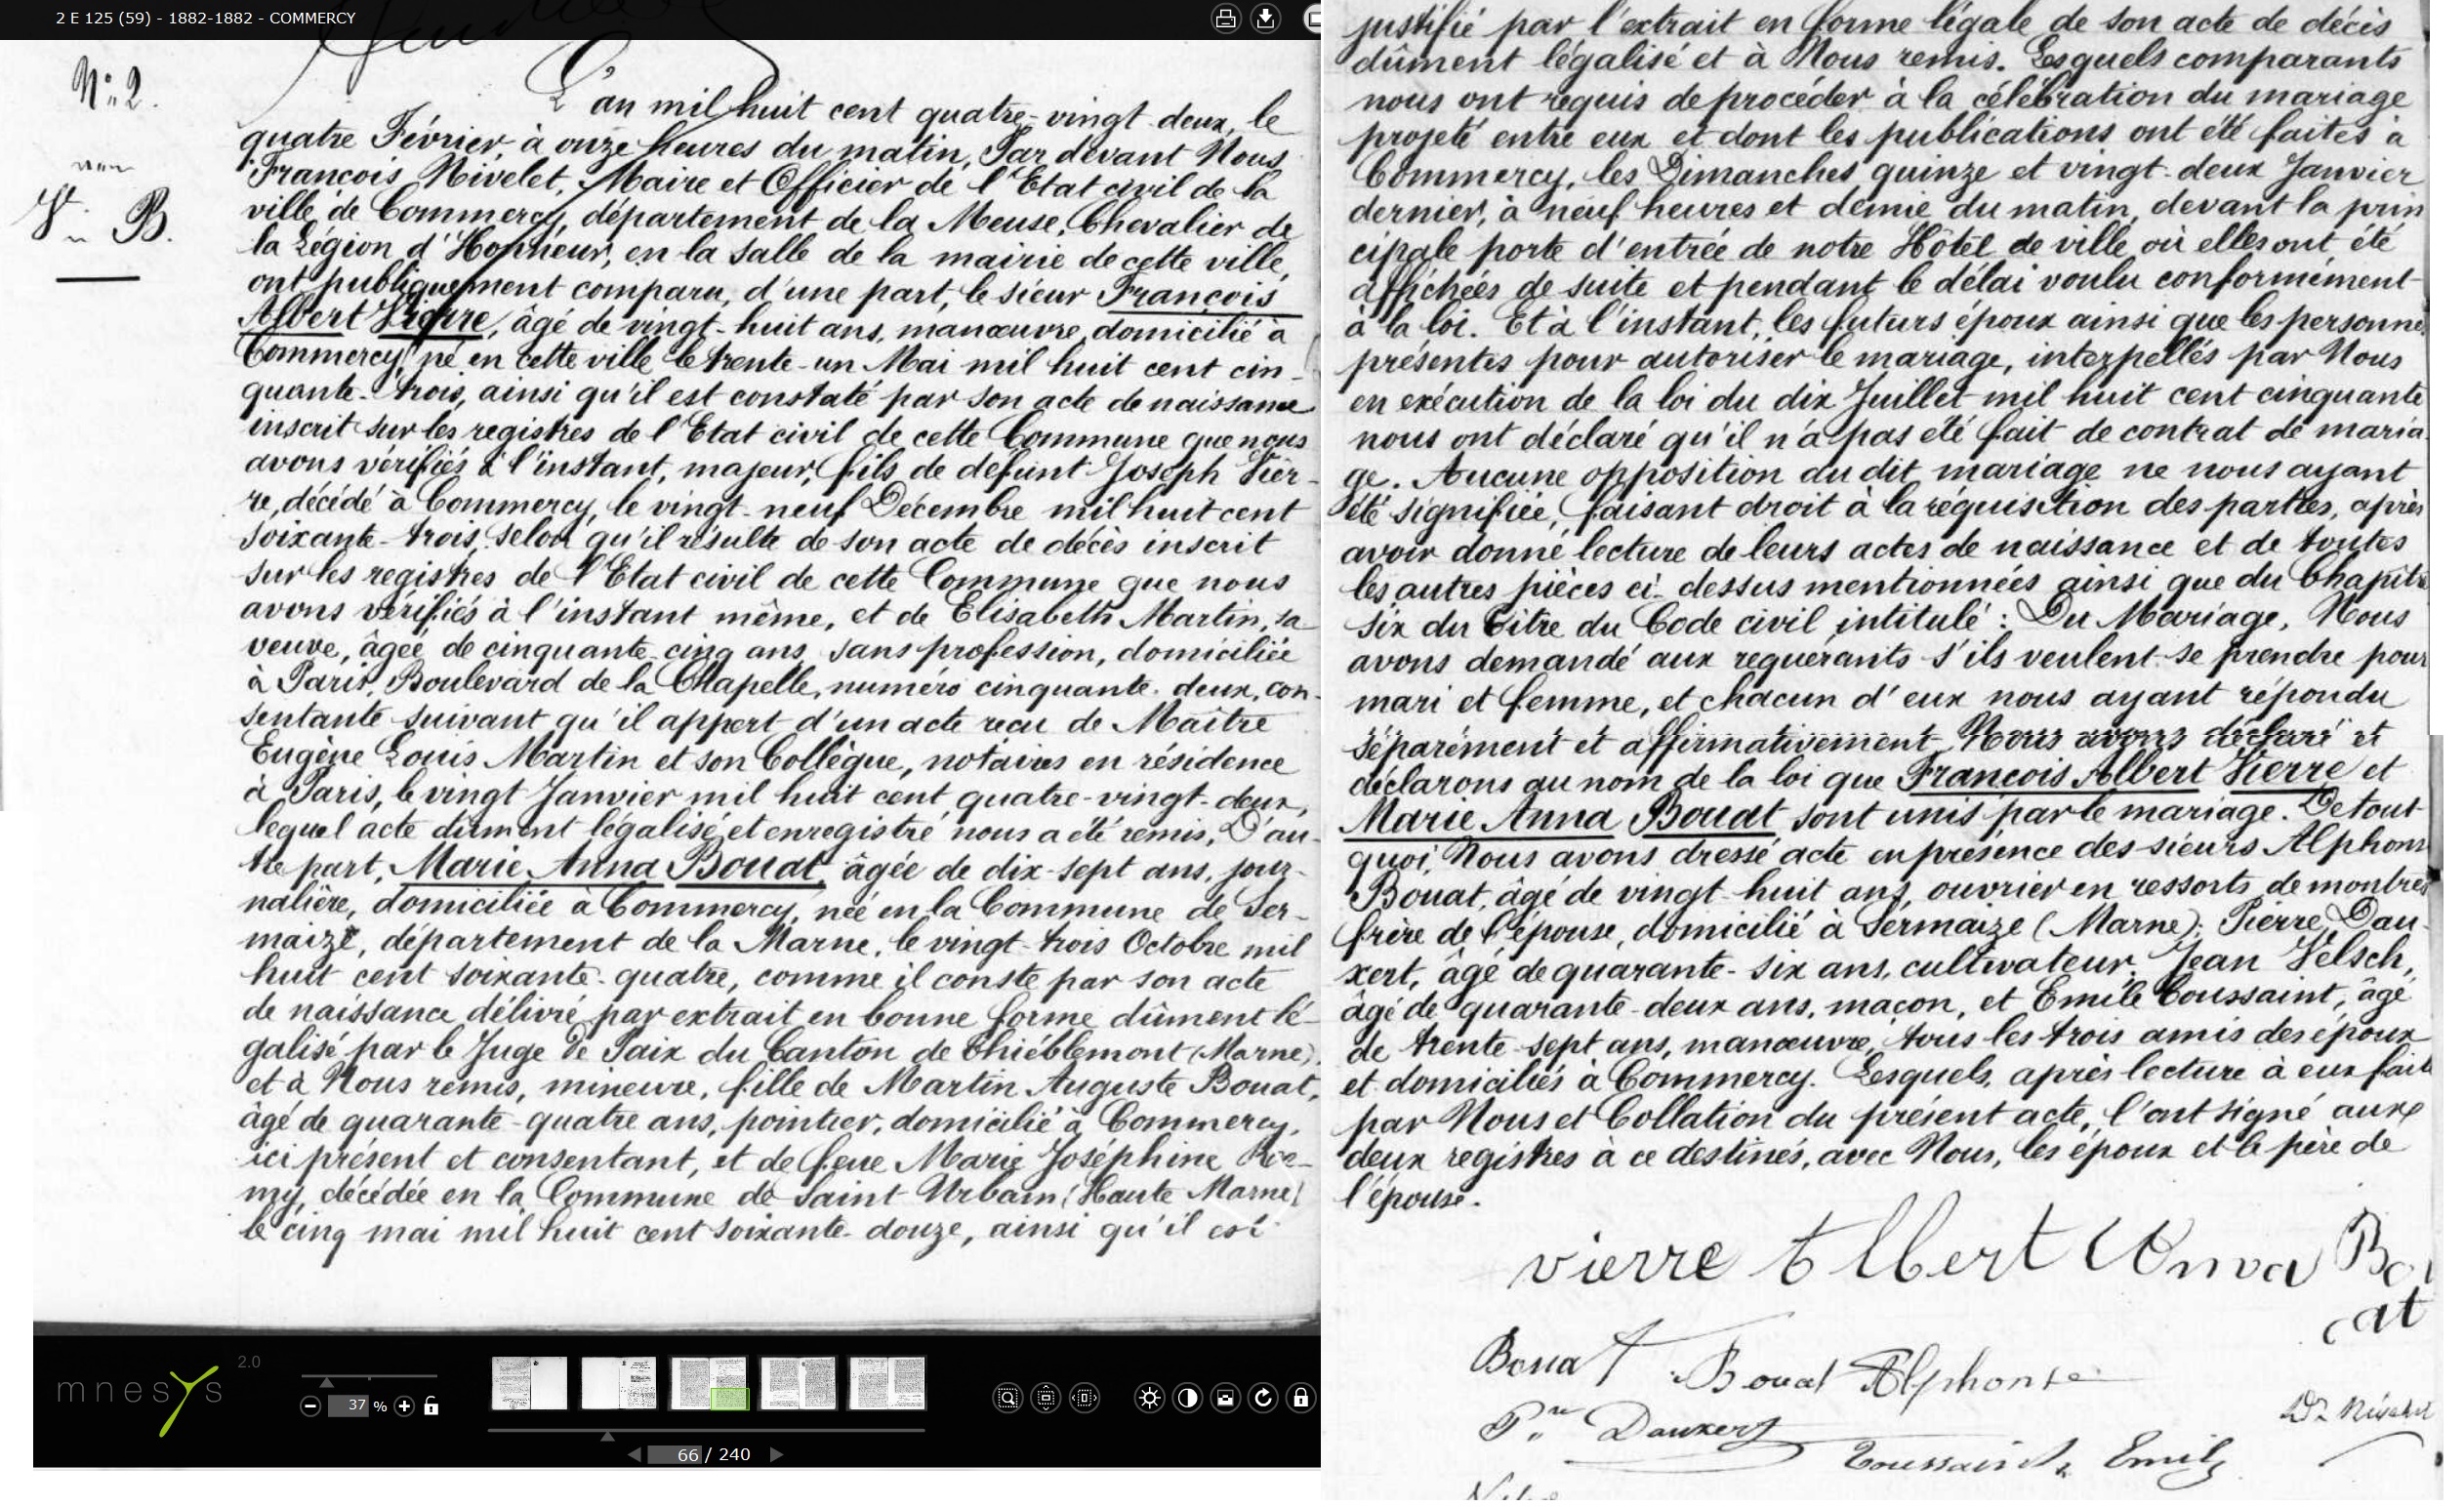 2 E 125 (59) - 1882-1882 - COMMERCY
N° 2.
V. B.
L'an mil huit cent quatre-vingt deux, le
quatre Février, à onze heures du matin, Par devant Nous
François Nivelet, Maire et Officier de l'Etat civil de la
ville de Commercy, département de la Meuse, Chevalier de
la Légion d'Honneur, en la salle de la mairie de cette ville,
ont publiquement comparu, d'une part, le sieur François
Albert Vierre, âgé de vingt-huit ans, manœuvre, domicilié à
Commercy, né en cette ville le trente-un Mai mil huit cent cin-
quante-trois, ainsi qu'il est constaté par son acte de naissance
inscrit sur les registres de l'Etat civil de cette Commune que nous
avons vérifiés à l'instant, majeur, fils de défunt Joseph Vier-
re, décédé à Commercy, le vingt-neuf Décembre mil huit cent
soixante-trois, selon qu'il résulte de son acte de décès inscrit
sur les registres de l'Etat civil de cette Commune que nous
avons vérifiés à l'instant même, et de Elisabeth Martin, sa
veuve, âgée de cinquante-cinq ans, sans profession, domiciliée
à Paris, Boulevard de la Chapelle, numéro cinquante-deux, con-
sentante suivant qu'il appert d'un acte reçu de Maître
Eugène Louis Martin et son Collègue, notaires en résidence
à Paris, le vingt Janvier mil huit cent quatre-vingt-deux,
lequel acte dûment légalisé et enregistré nous a été remis, D'au-
tre part, Marie Anna Bouat, âgée de dix-sept ans, jour-
nalière, domiciliée à Commercy, née en la Commune de Ser-
maize, département de la Marne, le vingt-trois Octobre mil
huit cent soixante-quatre, comme il conste par son acte
de naissance délivré par extrait en bonne forme dûment lé-
galisé par le Juge de Paix du Canton de Thiéblemont (Marne)
et à Nous remis, mineure, fille de Martin Auguste Bouat,
âgé de quarante-quatre ans, pointier, domicilié à Commercy,
ici présent et consentant, et de feue Marie Joséphine Re-
my, décédée en la Commune de Saint Urbain (Haute Marne)
le cinq mai mil huit cent soixante-douze, ainsi qu'il est
mnesys 2.0
37 %
66 / 240
justifié par l'extrait en forme légale de son acte de décès
dûment légalisé et à Nous remis. Lesquels comparants
nous ont requis de procéder à la célébration du mariage
projeté entre eux et dont les publications ont été faites à
Commercy, les Dimanches quinze et vingt-deux Janvier
dernier, à neuf heures et demie du matin, devant la prin
cipale porte d'entrée de notre Hôtel de ville où elles ont été
affichées de suite et pendant le délai voulu conformément
à la loi. Et à l'instant, les futurs époux ainsi que les personnes
présentes pour autoriser le mariage, interpellés par Nous
en exécution de la loi du dix Juillet mil huit cent cinquante
nous ont déclaré qu'il n'a pas été fait de contrat de maria
ge. Aucune opposition du dit mariage ne nous ayant
été signifiée, faisant droit à la réquisition des parties, après
avoir donné lecture de leurs actes de naissance et de toutes
les autres pièces ci-dessus mentionnées ainsi que du Chapitre
six du Titre du Code civil intitulé : Du Mariage, Nous
avons demandé aux requérants s'ils veulent se prendre pour
mari et femme, et chacun d'eux nous ayant répondu
séparément et affirmativement Nous avons déclaré et
déclarons au nom de la loi que François Albert Vierre et
Marie Anna Bouat sont unis par le mariage. De tout
quoi, Nous avons dressé acte en présence des sieurs Alphons
Bouat, âgé de vingt-huit ans, ouvrier en ressorts de montres
frère de l'épouse, domicilié à Sermaize (Marne); Pierre Dau-
xert, âgé de quarante-six ans, cultivateur; Jean Velsch,
âgé de quarante-deux ans, maçon, et Emile Toussaint, âgé
de trente-sept ans, manœuvre, tous les trois amis des époux
et domiciliés à Commercy. Lesquels, après lecture à eux faite
par Nous et Collation du présent acte, l'ont signé aux
deux registres à ce destinés, avec Nous, les époux et le père de
l'épouse.
vierre Albert Anna Bou
at
Bouat Bouat Alphonse
Dauxert
Toussaint Emile
Dr Nivelet